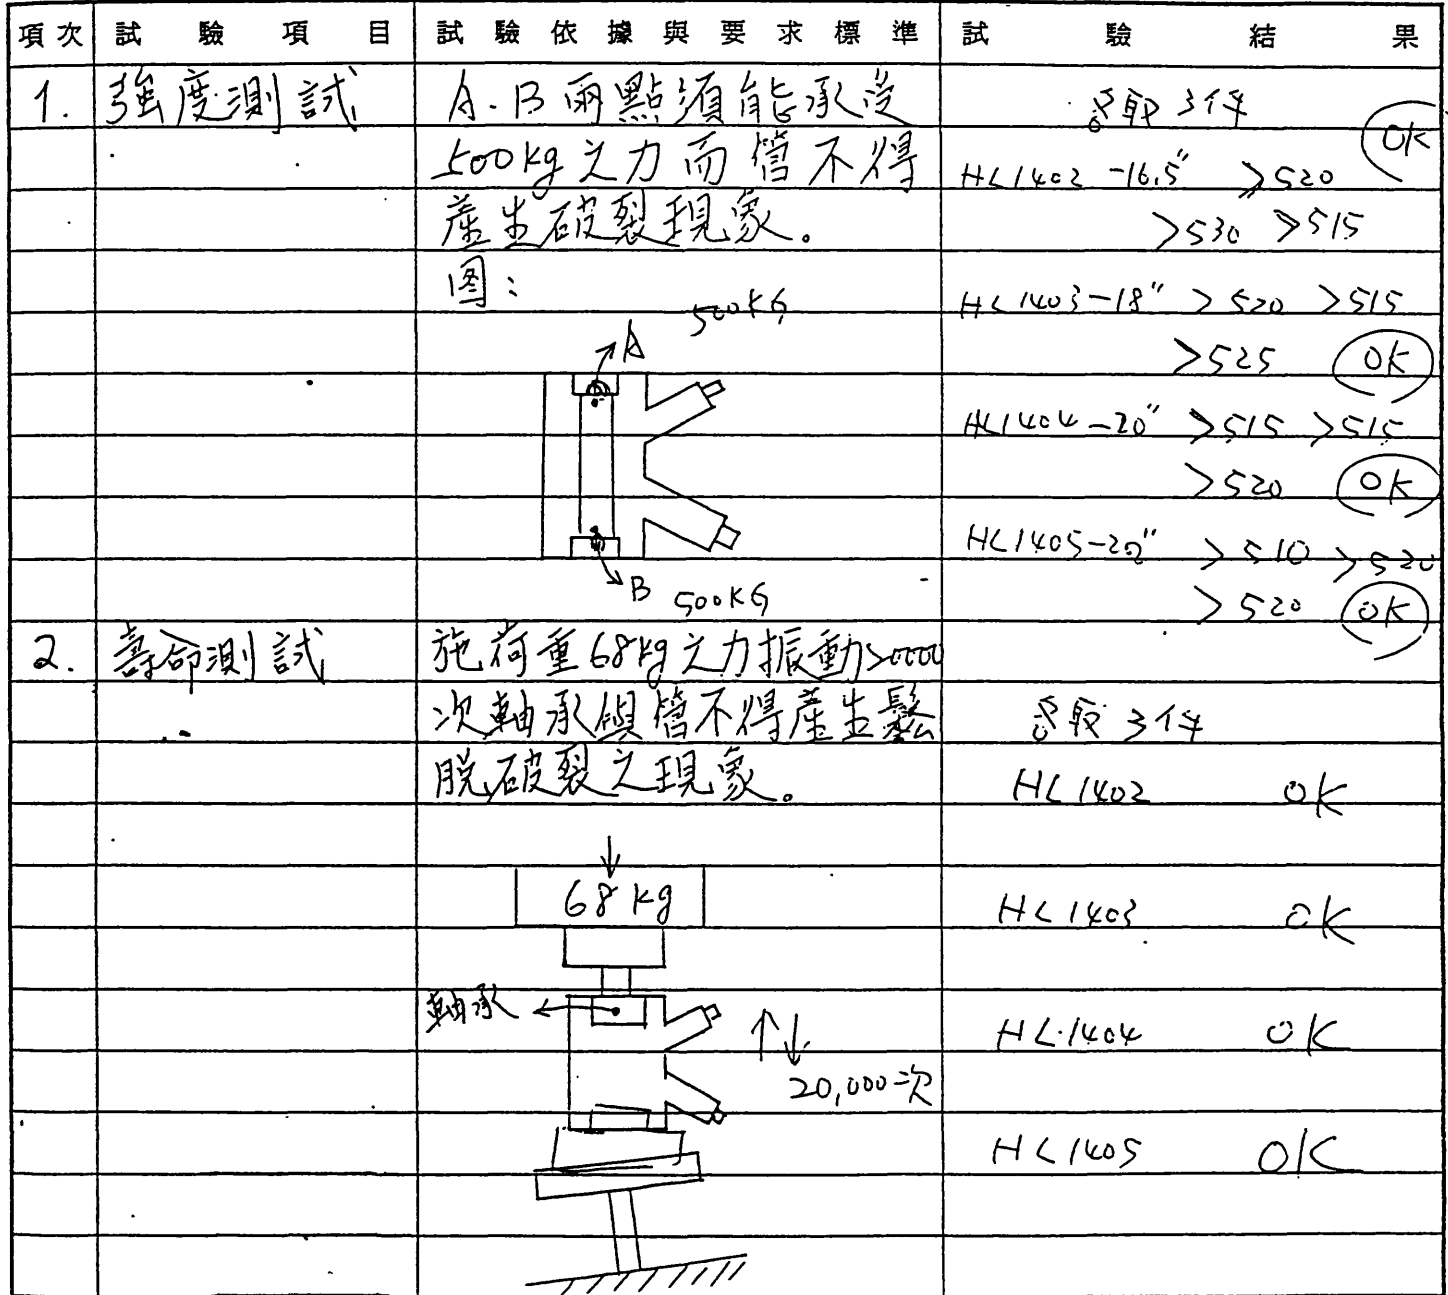 項次 試驗項目 試驗依據與要求標準 試驗結果
1. 強度測試
A.B兩點須能承受
500kg之力而管不得
產生破裂現象。
图:
500KG
A
B 500KG
取3件
OK
HL1402 -16.5" >520
>530 >515
HL1403-18" >520 >515
>525 OK
HL1404-20" >515 >515
>520 OK
HL1405-20" >510 >520
>520 OK
2. 壽命測試
施荷重68kg之力振動20000
次軸承與管不得產生鬆
脫破裂之現象。
68kg
軸承
↑↓
20,000次
取3件
HL1402 OK
HL1403 OK
HL1404 OK
HL1405 OK